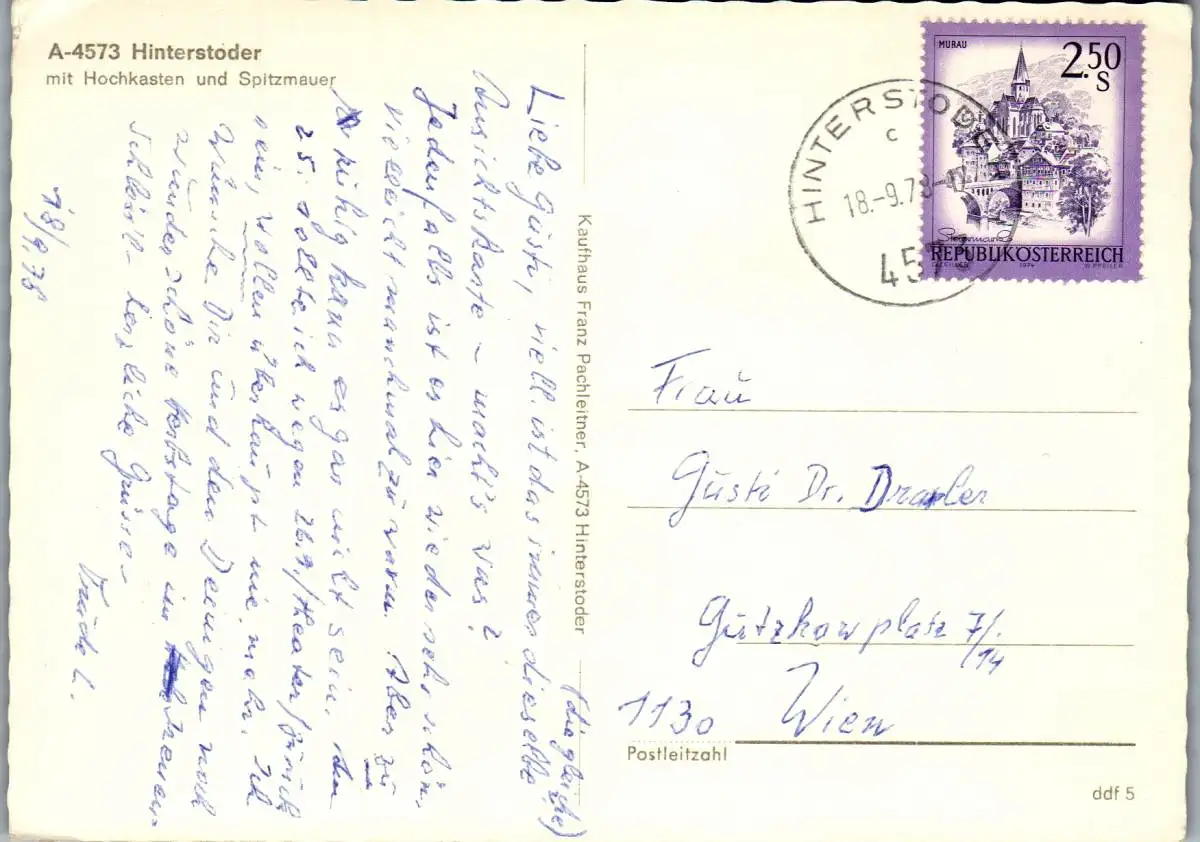 A-4573 Hinterstoder
mit Hochkasten und Spitzmauer
Liebe Gusti, viell. ist das immer dieselbe
(die gleiche)
Ansichtskarte – macht's was?
Jedenfalls ist es hier wieder sehr schön,
vielleicht manchmal zu warm. Aber zu
ruhig kann es gar nicht sein. Am
25. sollte ich wegen 26.9./Theater/zurück
sein, wollen überhaupt nie mehr. Ich
wünsche Dir und den Deinigen noch
wunderschöne Herbsttage im
Schlössl – herzliche Grüsse –
Trude L.
18/9/78
Kaufhaus Franz Pachleitner, A-4573 Hinterstoder
MURAU
2.50
S
Steiermark
REPUBLIK ÖSTERREICH
1974 W. PFEILER
HINTERSTODER
c
18.-9.78-17
457
Frau
Gusti Dr. Draxler
Gutzkowplatz 7/.
/14
1130 Wien
Postleitzahl
ddf 5